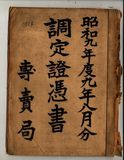 昭和九年度九年八月分
調定證憑書
專賣局